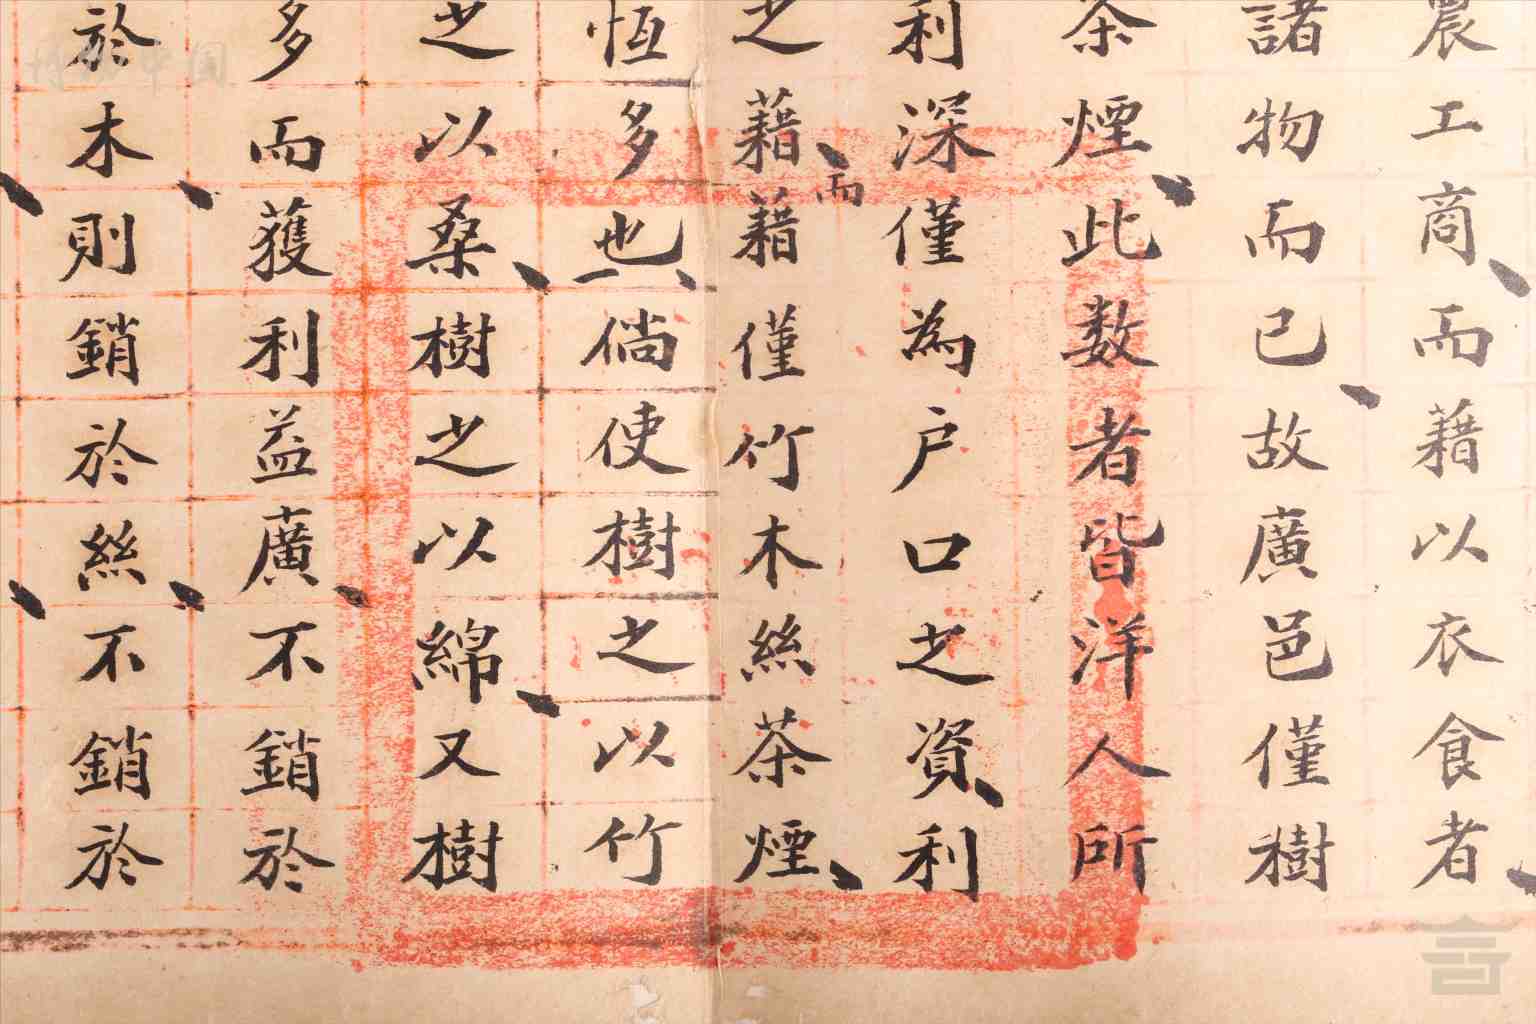 農工商而藉以衣食者
諸物而已故廣邑僅樹
茶煙此数者皆洋人所
利深僅為户口之資利
之藉藉而僅竹木絲茶煙
恆多也倘使樹之以竹
之以桑樹之以綿又樹
多而獲利益廣不銷於
於木則銷於絲不銷於
博物中国